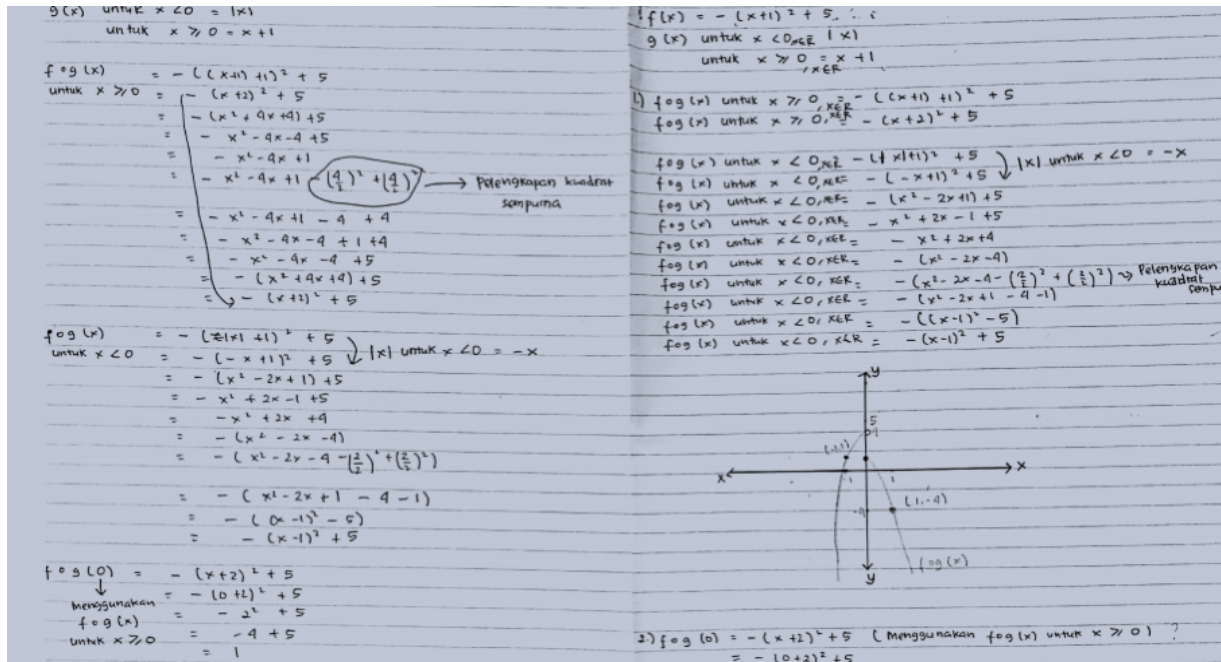 g(x) untuk x < 0 = |x|
untuk x ⩾ 0 = x + 1
fog(x) = - ((x+1) +1)² + 5
untuk x ⩾ 0 = - (x+2)² + 5
= - (x² + 4x + 4) + 5
= - x² - 4x - 4 + 5
= - x² - 4x + 1
= - x² - 4x + 1 - (4/2)² + (4/2)² → Pelengkapan kuadrat
sempurna
= - x² - 4x + 1 - 4 + 4
= - x² - 4x - 4 + 1 + 4
= - x² - 4x - 4 + 5
= - (x² + 4x + 4) + 5
= - (x+2)² + 5
fog(x) = - (|x| +1)² + 5
untuk x < 0 = - (-x +1)² + 5 |x| untuk x < 0 = -x
= - (x² - 2x + 1) + 5
= - x² + 2x - 1 + 5
= - x² + 2x + 4
= - (x² - 2x - 4)
= - (x² - 2x - 4 - (2/2)² + (2/2)²)
= - (x² - 2x + 1 - 4 - 1)
= - ((x-1)² - 5)
= - (x-1)² + 5
fog(0) = - (x+2)² + 5
↓ = - (0+2)² + 5
Menggunakan
fog(x) = - 2² + 5
untuk x ⩾ 0 = - 4 + 5
= 1
f(x) = - (x+1)² + 5
g(x) untuk x < 0, x∈R |x|
untuk x ⩾ 0 = x + 1
, x∈R
1.) fog(x) untuk x ⩾ 0, x∈R = - ((x+1) +1)² + 5
fog(x) untuk x ⩾ 0, x∈R = - (x+2)² + 5
fog(x) untuk x < 0, x∈R - (|x|+1)² + 5
fog(x) untuk x < 0, x∈R = - (-x+1)² + 5 |x| untuk x < 0 = -x
fog(x) untuk x < 0, x∈R = - (x² - 2x+1) + 5
fog(x) untuk x < 0, x∈R = - x² + 2x - 1 + 5
fog(x) untuk x < 0, x∈R = - x² + 2x + 4
fog(x) untuk x < 0, x∈R = - (x² - 2x - 4)
fog(x) untuk x < 0, x∈R = - (x² - 2x - 4 - (2/2)² + (2/2)²) → Pelengkapan
kuadrat
fog(x) untuk x < 0, x∈R = - (x² - 2x + 1 - 4 - 1)
fog(x) untuk x < 0, x∈R = - ((x-1)² - 5)
fog(x) untuk x < 0, x∈R = - (x-1)² + 5
y
5
4
(-1,1)
x x
-1 1
-4 (1,-4)
fog(x)
y
2) fog(0) = - (x+2)² + 5 (Menggunakan fog(x) untuk x ⩾ 0) ?
= - (0+2)² + 5